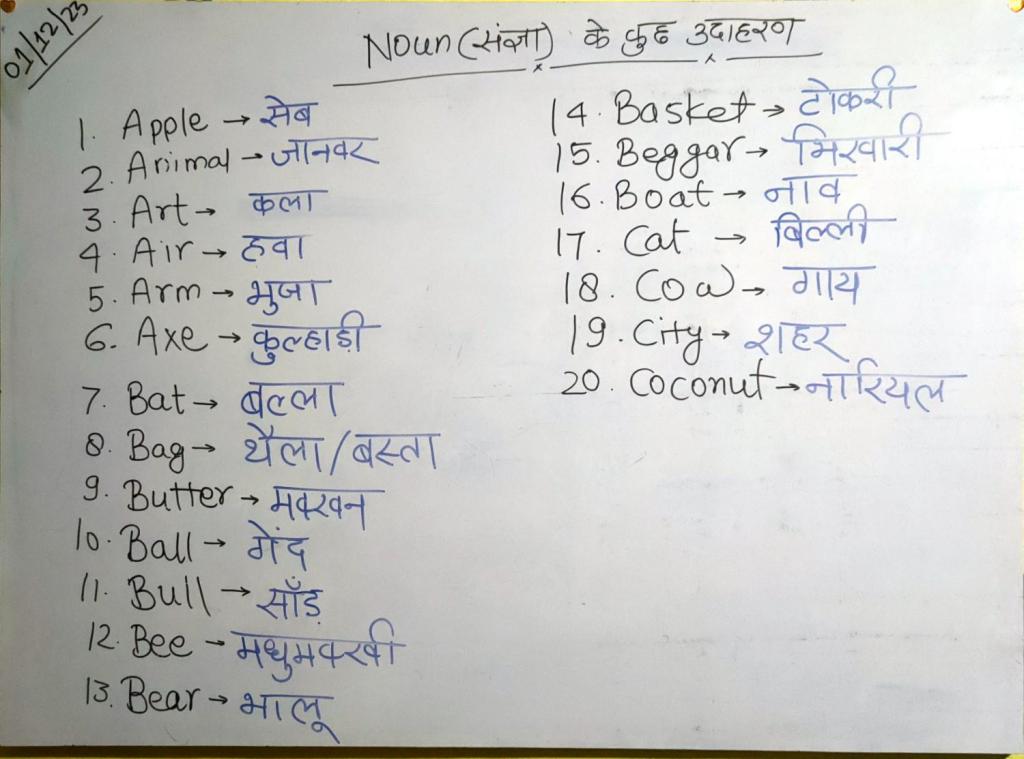 01/12/23
Noun (संज्ञा) के कुछ उदाहरण
1. Apple → सेब
2. Animal → जानवर
3. Art → कला
4. Air → हवा
5. Arm → भुजा
6. Axe → कुल्हाड़ी
7. Bat → बल्ला
8. Bag → थैला/बस्ता
9. Butter → मक्खन
10. Ball → गेंद
11. Bull → साँड़
12. Bee → मधुमक्खी
13. Bear → भालू
14. Basket → टोकरी
15. Beggar → भिखारी
16. Boat → नाव
17. Cat → बिल्ली
18. Cow → गाय
19. City → शहर
20. Coconut → नारियल